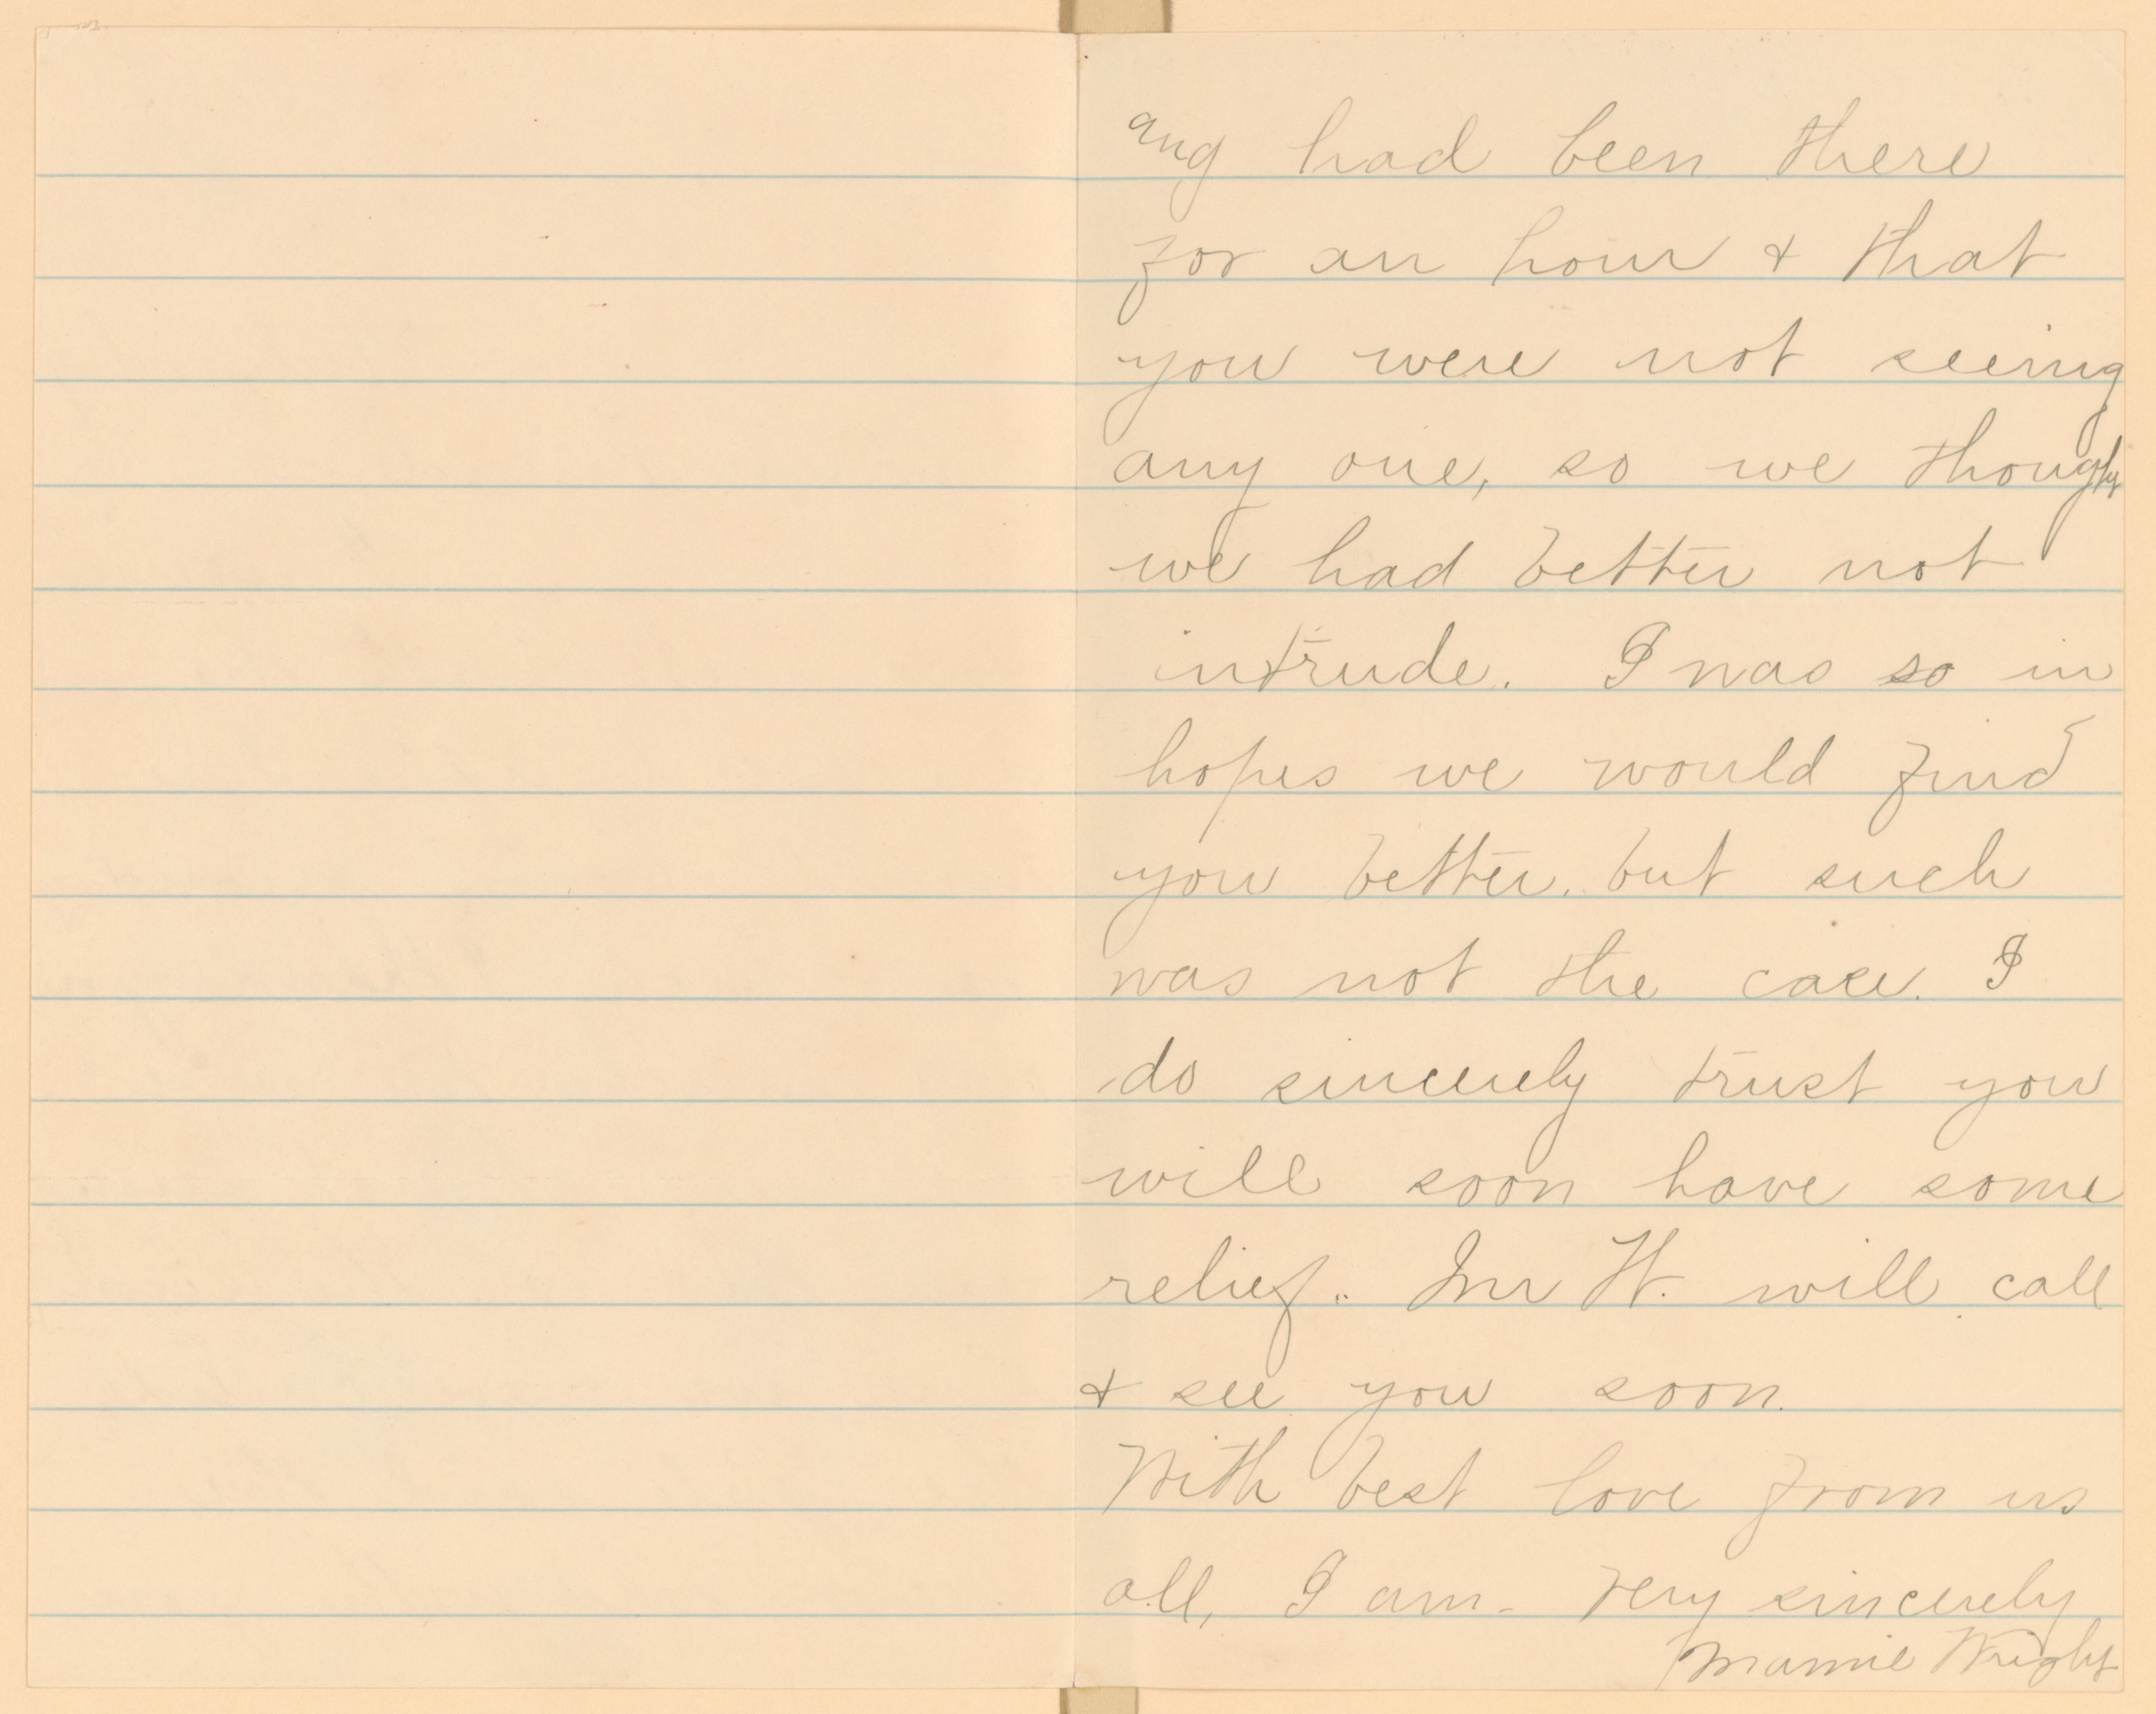 aug had been there
for an hour & that
you were not seeing
any one, so we thought
we had better not
intrude. I was so in
hopes we would find
you better. but such
was not the case. I
do sincerely trust you
will soon have some
relief.. Mr W. will call
& see you soon.
With best love from us
all, I am - Very sincerely
Mamie Wright